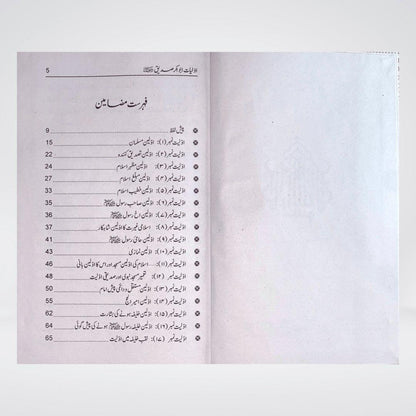 اوّلیات ابوبکر صدیق ؓ 5
فہرست مضامین
پیش لفظ 9
اوّلیت نمبر (۱): اوّلین مسلمان 15
اوّلیت نمبر (۲): اوّلین تصدیق کنندہ 22
اوّلیت نمبر (۳): اوّلین مظہر اسلام 24
اوّلیت نمبر (۴): اوّلین مبلغ اسلام 27
اوّلیت نمبر (۵): اوّلین خطیب اسلام 33
اوّلیت نمبر (۶): اوّلین صاحب رسول ﷺ 35
اوّلیت نمبر (۷): اوّلین رسول ﷺ 36
اوّلیت نمبر (۸): اسلامی غیرت کا اوّلین شاہکار 37
اوّلیت نمبر (۹): اوّلین حامئ رسول ﷺ 41
اوّلیت نمبر (۱۰): اوّلین نمازی 43
اوّلیت نمبر (۱۱): اسلام کی اوّلین مسجد اور اس کا اوّلین بانی 46
اوّلیت نمبر (۱۲): تعمیر مسجد نبوی اور صدیقی اوّلیت 48
اوّلیت نمبر (۱۳): اوّلین مستقل و دائمی پیش امام 50
اوّلیت نمبر (۱۴): اوّلین امیر الحج 55
اوّلیت نمبر (۱۵): اوّلین خلیفہ ہونے کی بشارت 62
اوّلیت نمبر (۱۶): اوّلین خلیفہ رسول ﷺ ہونے کی پیش گوئی 64
اوّلیت نمبر (۱۷): لقب خلیفہ میں اوّلیت 65